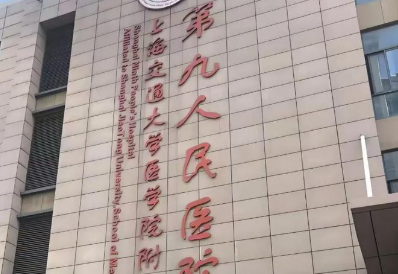 第九人民医院
上海交通大学医学院附
Shanghai Ninth People's Hospital
Affiliated to Shanghai JiaoTong University, School of